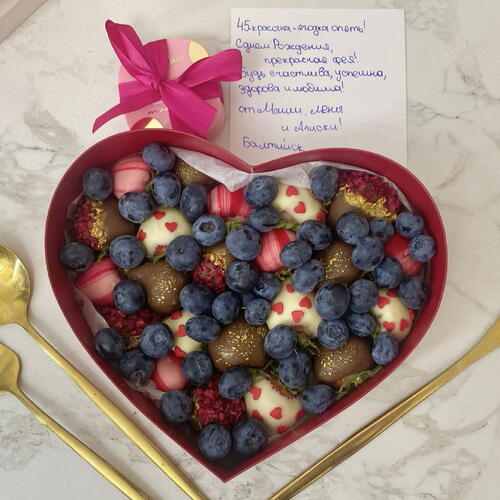 45 красотка - ягодка опять!
С днём Рождения,
прекрасная фея!
Будь счастлива, успешна,
здорова и любима!
от Маши, Лены
и Алиски!
Балтийск